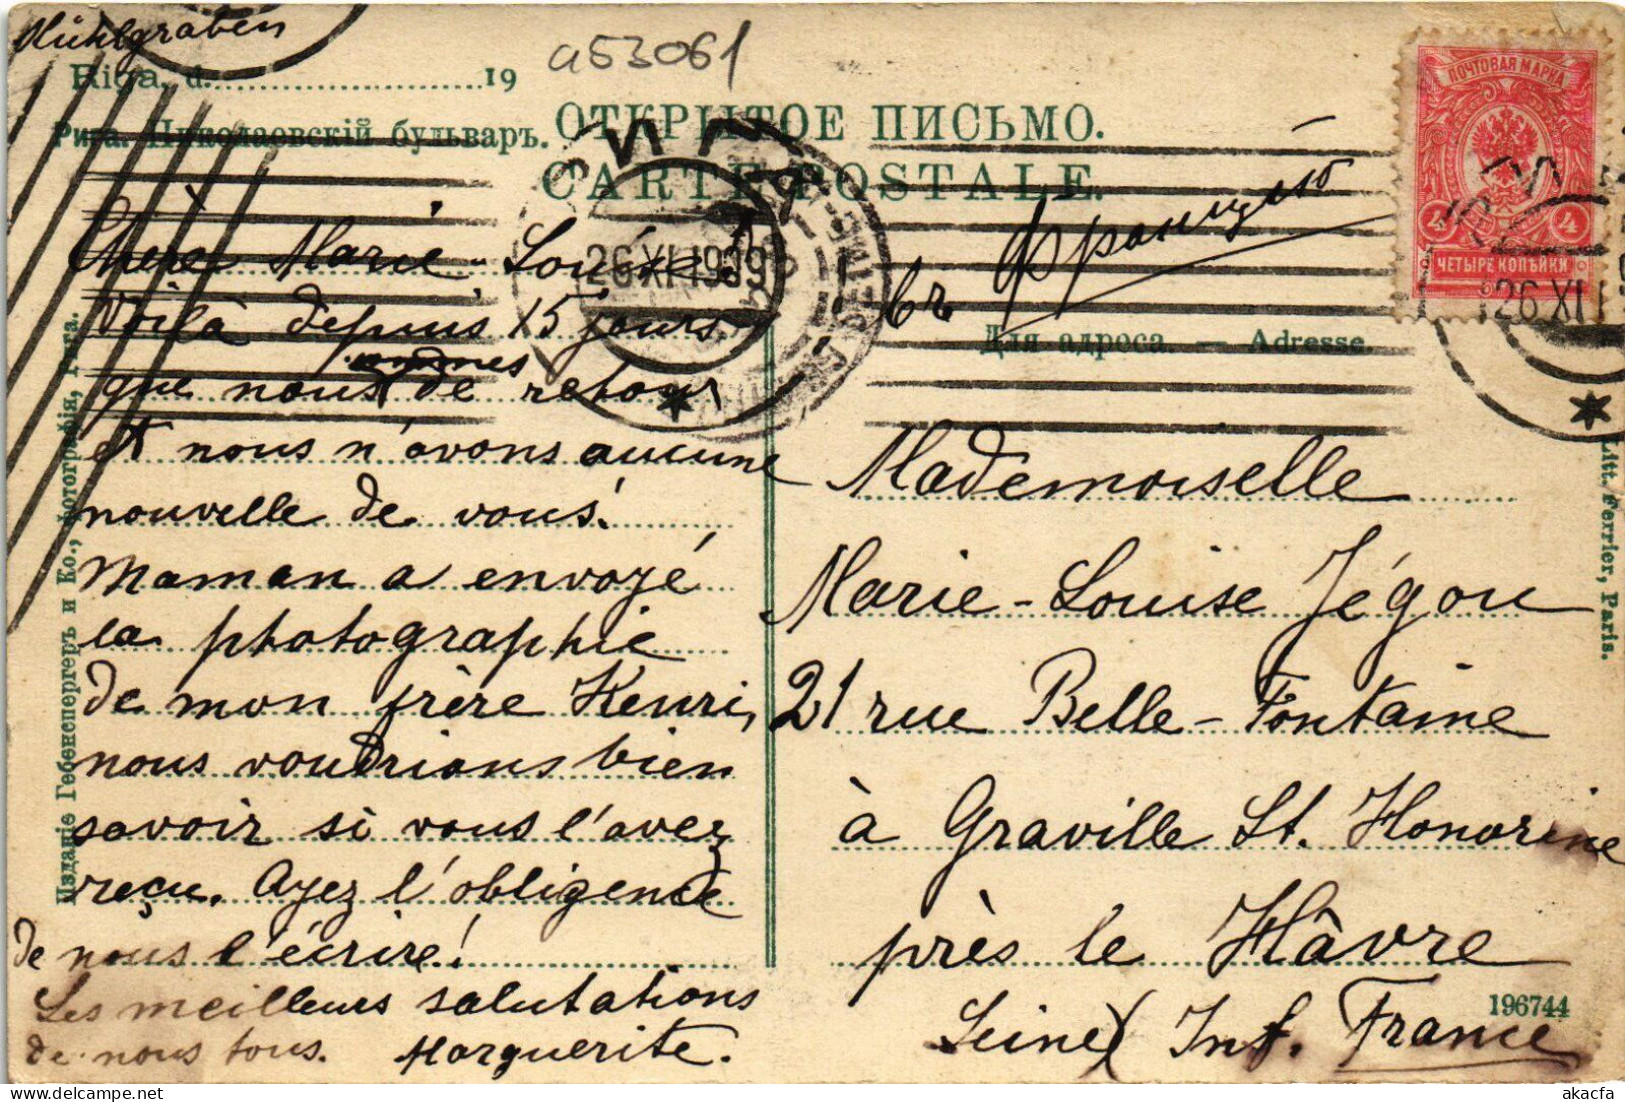 Mühlgraben
a53061
Riga, d. 19
Рига. Николаевскій бульваръ.
ОТКРЫТОЕ ПИСЬМО.
CARTE POSTALE.
ПОЧТОВАЯ МАРКА
4 4
ЧЕТЫРЕ КОПѢЙКИ
26 XI 1909
26 XI 1
въ Францію
Для адреса. — Adresse.
Chère Marie-Louise
Voilà depuis 15 jours
sommes
que nous de retour
et nous n'avons aucune
nouvelle de vous!
Maman a envoyé
la photographie
de mon frère Henri,
nous voudrions bien
savoir si vous l'avez
reçu. Ayez l'obligence
de nous l'écrire!
Les meilleurs salutations
de nous tous. Marguerite.
Mademoiselle
Marie-Louise Jégou
21 rue Belle-Fontaine
à Graville St. Honorine
près le Hâvre
Seine Inf. France
196744
Изданіе Гебенспергеръ и Ко., фотографія, Рига.
Litt. Ferrier, Paris.
akacfa